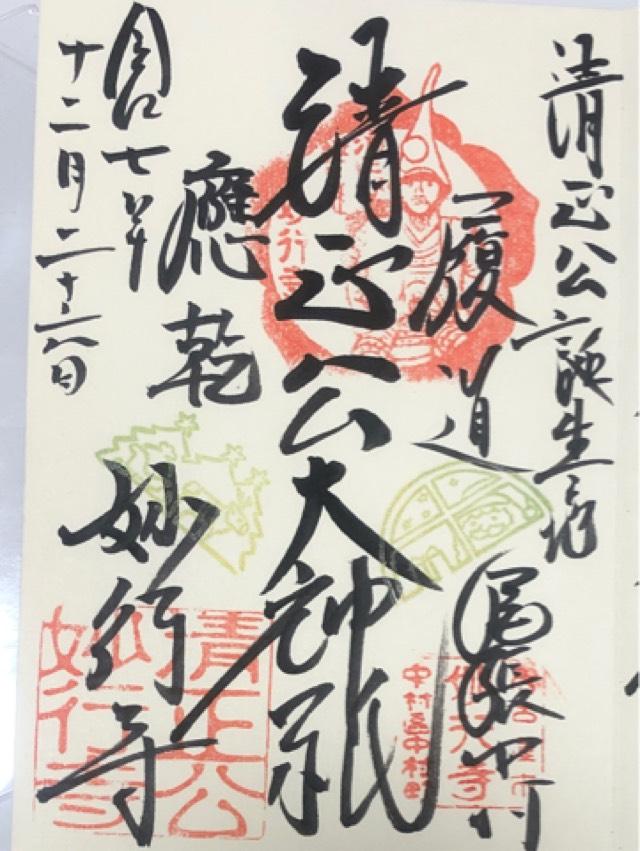 清正公誕生之地
尾張中村
履道
清正公大神祇
應乾
妙行寺
令和七年
十二月二十六日
妙行寺
清正公
妙行寺
名古屋市
中村区中村町
妙行寺